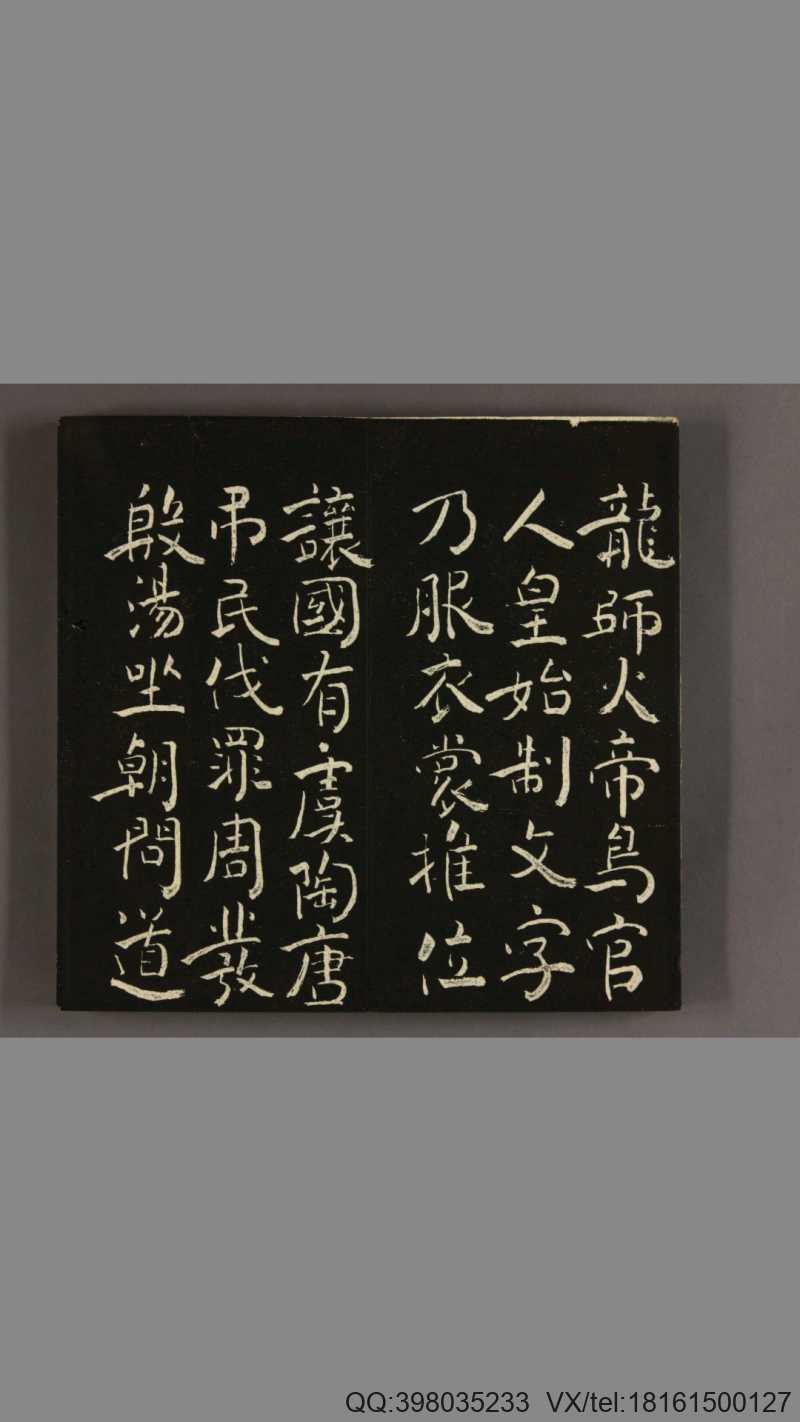 龍師火帝鳥官
人皇始制文字
乃服衣裳推位
讓國有虞陶唐
弔民伐罪周發
殷湯坐朝問道
QQ:398035233 VX/tel:18161500127